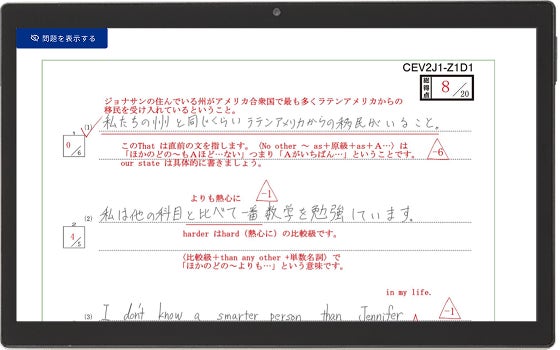 問題を表示する
CEV2J1-Z1D1
総得点 8/20
ジョナサンの住んでいる州がアメリカ合衆国で最も多くラテンアメリカからの
移民を受け入れているということ。
(1) 私たちの州と同じくらいラテンアメリカからの移民がいること。
0/6
このThat は直前の文を指します。〈No other ～ as＋原級＋as＋A…〉は
「ほかのどの～もAほど…ない」つまり「Aがいちばん…」ということです。
our state は具体的に書きましょう。
-6
よりも熱心に
-1
(2) 私は他の科目と比べて一番数学を勉強しています。
4/5
harder はhard（熱心に）の比較級です。
〈比較級＋than any other +単数名詞〉で
「ほかのどの～よりも…」という意味です。
in my life.
(3) I don't know a smarter person than Jennifer
-1